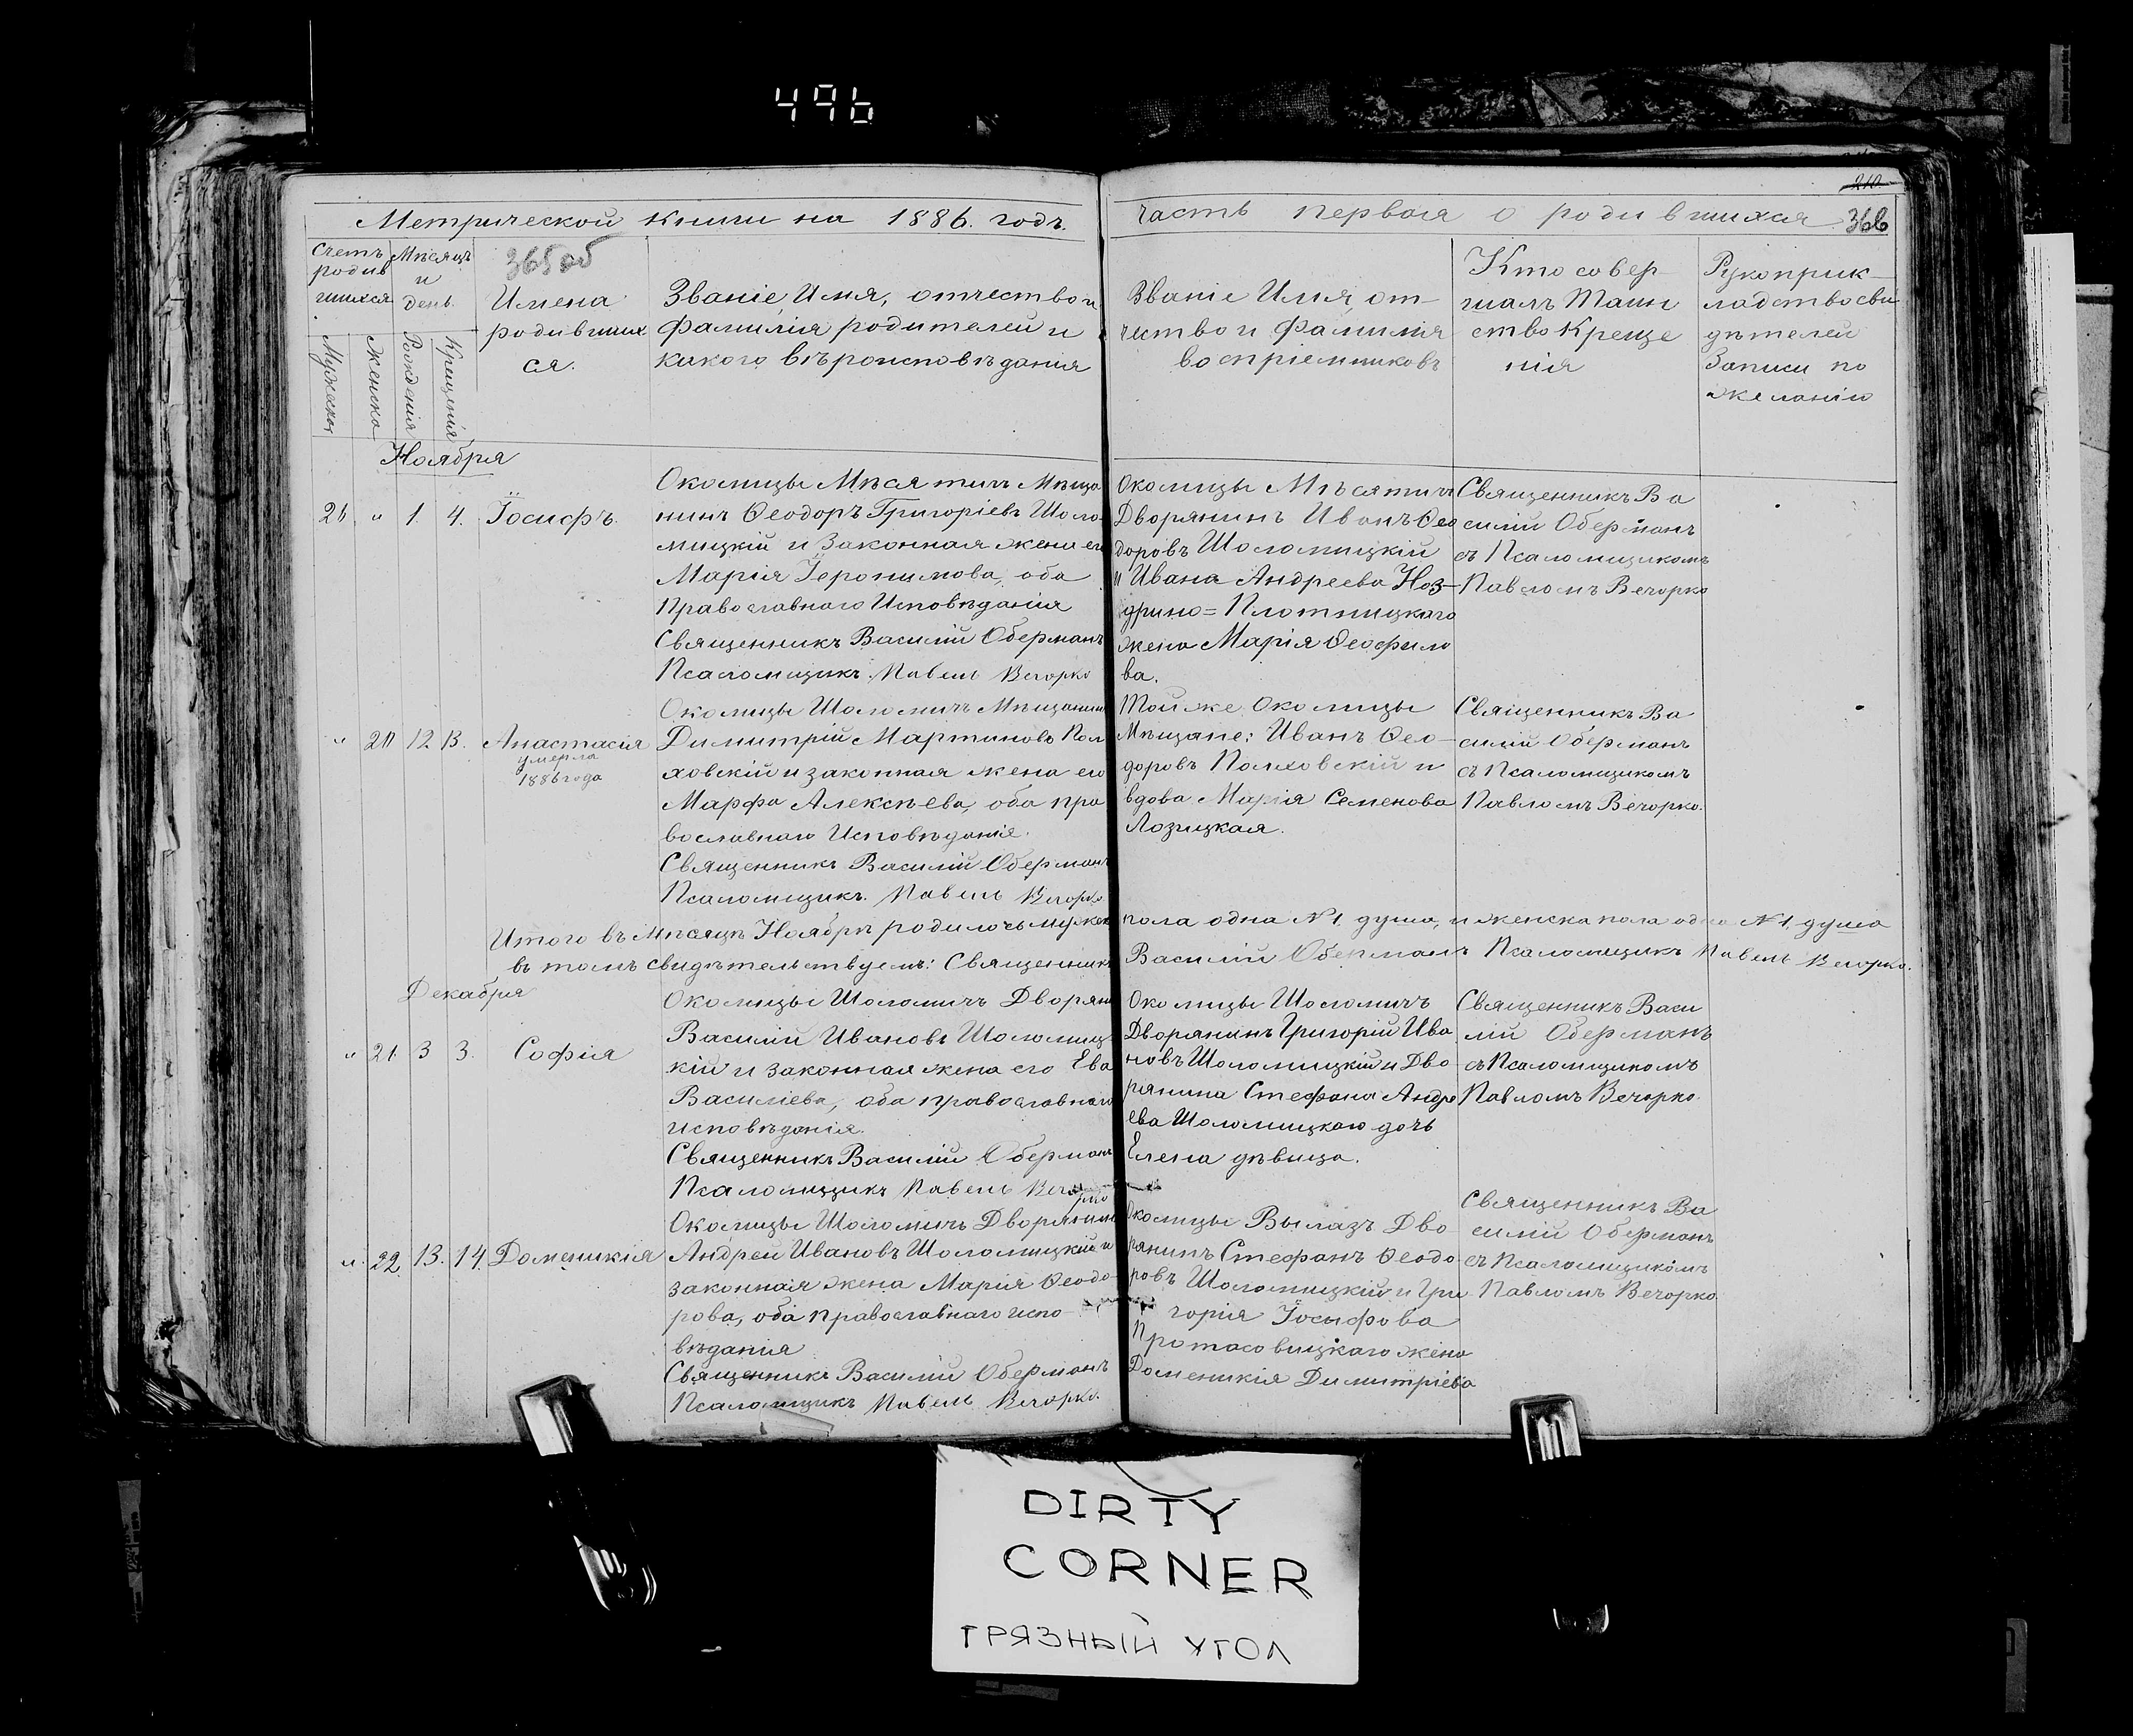 496
210
Метрической книги на 1886. годъ.
часть первая о родившихся
366
Счетъ родив шихся
Мужеска
Женска
Мѣсяцъ и день
Рожденія
Крещенія
365 об
Имена
родивших
ся.
Званіе, Имя, отчество и
Фамилія родителей и
какого вѣроисповѣданія
Званіе Имя, от-
чество и Фамилія
воспріемниковъ
Кто совер-
шалъ Таин
ство Креще
нія
Рукоприк-
ладство сви
дѣтелей
Записи по
желанію
Ноября
21. " 1. 4. Іосифъ.
Околицы Мѣсятичъ Мѣща
нинъ Ѳеодоръ Григоріевъ Шоло-
мицкій и Законная жена его
Марія Іеронимова, оба
Православнаго Исповѣданія
Священникъ Василій Оберманъ
Псаломщикъ Павелъ Вечорко
Околицы Мѣсятичъ
Дворянинъ Иванъ Ѳео
доровъ Шоломицкій
и Ивана Андреева Ноз-
дрино=Плотницкаго
жена Марія Ѳеофило
ва.
Священникъ Ва
силій Оберманъ
съ Псаломщикомъ
Павломъ Вечорко
" 20 12 13. Анастасія
умерла
1886 года
Околицы Шоломичъ Мѣщанинъ
Димитрій Мартиновъ Пол
ховскій и законная жена его
Марфа Алексѣева, оба пра
вославнаго Исповѣданія.
Священникъ Василій Оберманъ
Псаломщикъ. Павелъ Вечорко
Той же Околицы
Мѣщане: Иванъ Ѳео-
доровъ Полховскій и
вдова Марія Семенова
Лозицкая.
Священникъ Ва
силій Оберманъ
съ Псаломщикомъ
Павломъ Вечорко.
Итого въ Мѣсяцѣ Ноябрѣ родилось мужеск пола одна №1. душа, и женска пола одна №1. душа
въ томъ свидѣтельствуемъ: Священникъ Василій Оберманъ Псаломщикъ Павелъ Вечорко.
Декабря
" 21. 3 3. Софія
Околицы Шоломичъ Дворянин
Василій Ивановъ Шоломиц
кій и законная жена его Ева
Василіева, оба православнаго
исповѣданія.
Священникъ Василій Оберманъ
Псаломщикъ Павелъ Вечорко
Околицы Шоломичъ
Дворянинъ Григорій Ива
новъ Шоломицкій и Дво
рянина Стефана Андре
ева Шоломицкаго дочь
Елена дѣвица.
Священникъ Васи
лій Оберманъ
съ Псаломщикомъ
Павломъ Вечорко.
". 22. 13. 14. Доменикія
Околицы Шоломичъ Дворянинъ
Андрей Ивановъ Шоломицкій и
законная жена Марія Ѳеодо-
рова, оба православнаго испо-
вѣданія
Священникъ Василій Оберманъ
Псаломщикъ Павелъ Вечорко.
Околицы Вылазъ Дво
рянинъ Стефанъ Ѳеодо
ровъ Шоломицкій и Гри
горія Іосифова
Протасовицкаго жена
Доменикія Димитріева
Священникъ Ва
силій Оберманъ
съ Псаломщикомъ
Павломъ Вечорко
DIRTY
CORNER
ГРЯЗНЫЙ УГОЛ